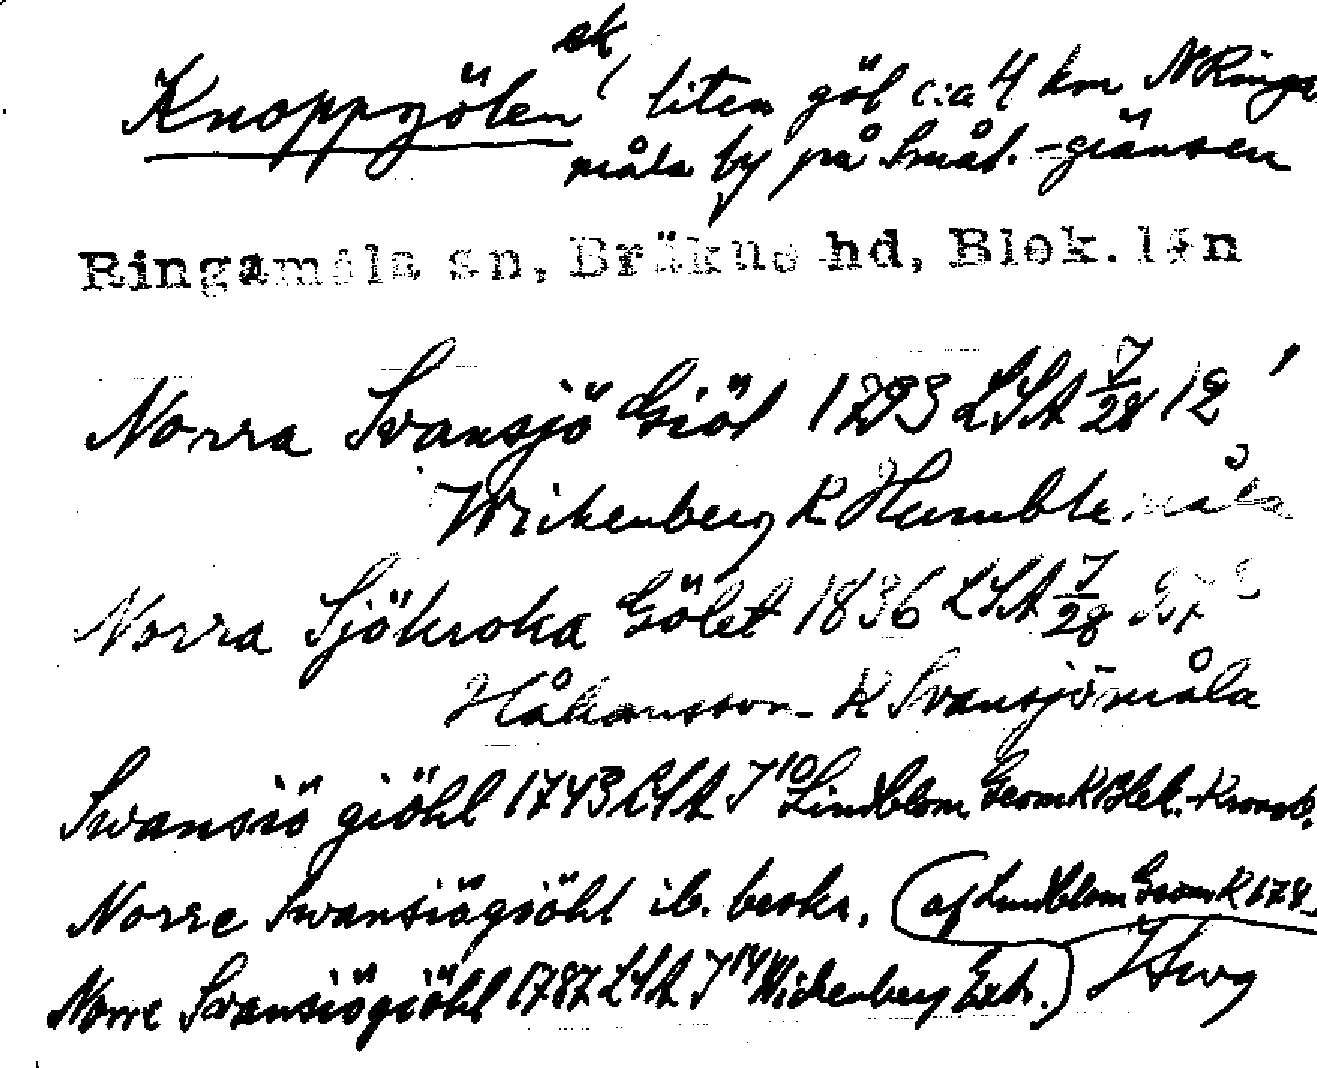 ek
Knoppgölen, liten göl c:a 4 km N Ringa
måla by på Smål.-gränsen
Ringamåla sn, Bräkne hd, Blek. län
Norra Svansjö Giöl 1793 LSA 7/28 12
Wickenberg K Humblemåla
Norra Sjökroka Gölet 1836 LSA 7/28
Håkansson K Svansjömåla
Swansiö giöhl 1743 LSA J 10 Lindblom Geom K Blek.-Kronob.
Norre Swansiögiöhl ib. beskr. (af Lindblom Geom K
Norre Svansiögiöhl 1787 LSA J 14 Wickenberg Extr.)